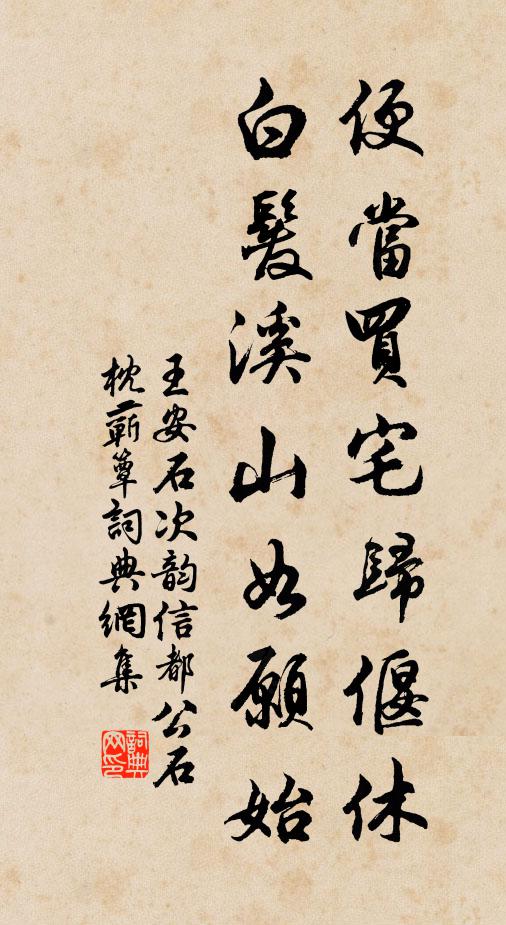 便當買宅歸偃休
白髮溪山如願始
王安石次韵信都公石
枕蘄簟詞典網集
詞典網印